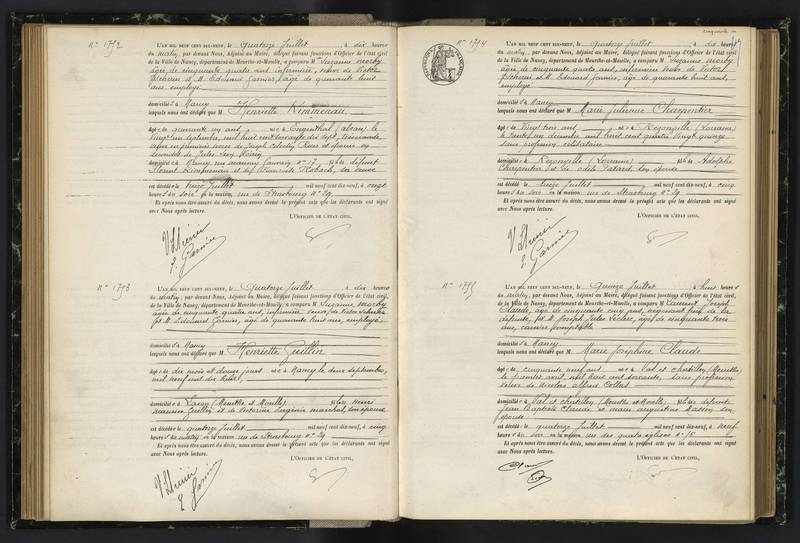 N° 1792
L'AN MIL NEUF CENT DIX-NEUF, le quatorze Juillet, à dix heures
du matin, par devant Nous, Adjoint au Maire, délégué faisant fonctions d'Officier de l'état civil
de la Ville de Nancy, département de Meurthe-et-Moselle, a comparu M Suzanne
âgée de cinquante quatre ans, infirmière, veuve de Victor
et M. Edouard Garnier, âgé de quarante huit
ans, employé
domicilié s à Nancy
lesquels nous ont déclaré que M Henriette Kimmenau
âgé e de quarante un ans, né e à (alsace) le
vingt un septembre mil huit cent soixante dix sept,
domicilié e à Nancy, rue n° 17, fille de défunt
est décédé e le treize Juillet mil neuf cent dix-neuf, à vingt
heures du soir en la maison, rue de Strasbourg n° 29
Et après nous être assuré du décès, nous avons dressé le présent acte que les déclarants ont signé
avec Nous après lecture.
L'OFFICIER DE L'ÉTAT CIVIL,
N° 1793
L'AN MIL NEUF CENT DIX-NEUF, le quatorze Juillet, à dix heures
du matin, par devant Nous, Adjoint au Maire, délégué faisant fonctions d'Officier de l'état civil
de la Ville de Nancy, département de Meurthe-et-Moselle, a comparu M Suzanne
âgée de cinquante quatre ans, infirmière, veuve de Victor
et M. Edouard Garnier, âgé de quarante huit ans, employé
domicilié s à Nancy
lesquels nous ont déclaré que M Henriette Guillin
âgé e de dix mois et douze jours né e à Nancy le deux septembre
mil neuf cent dix huit,
domicilié e à Laxou (Meurthe et Moselle) fille de Henri
Maurice Guillin et de Victorine marchal, son épouse
est décédé e le quatorze Juillet mil neuf cent dix-neuf, à cinq
heures du matin en la maison, rue de Strasbourg n° 29
Et après nous être assuré du décès, nous avons dressé le présent acte que les déclarants ont signé
avec Nous après lecture.
L'OFFICIER DE L'ÉTAT CIVIL,
N° 1794
L'AN MIL NEUF CENT DIX-NEUF, le quatorze Juillet, à dix heures
du matin, par devant Nous, Adjoint au Maire, délégué faisant fonctions d'Officier de l'état civil
de la Ville de Nancy, département de Meurthe-et-Moselle, a comparu M Suzanne
âgée de cinquante quatre ans, infirmière, veuve de Victor
et M. Edouard Garnier, âgé de quarante huit ans,
employé
domicilié s à Nancy
lesquels nous ont déclaré que M Marie Julienne Charpentier
âgé e de vingt trois ans, né e à Rezonville (Lorraine)
le mil huit cent quatre vingt quinze,
sans profession célibataire
domicilié e à Rezonville (Lorraine) fille de Adolphe
Charpentier et de Odile son épouse
est décédé e le treize Juillet mil neuf cent dix-neuf, à cinq
heures du soir en la maison, rue de Strasbourg n° 29
Et après nous être assuré du décès, nous avons dressé le présent acte que les déclarants ont signé
avec Nous après lecture.
L'OFFICIER DE L'ÉTAT CIVIL,
N° 1795
L'AN MIL NEUF CENT DIX-NEUF, le quinze Juillet, à huit heures
du matin, par devant Nous, Adjoint au Maire, délégué faisant fonctions d'Officier de l'état civil,
de la Ville de Nancy, département de Meurthe-et-Moselle, a comparu M Laurent Joseph
Claude, âgé de cinquante cinq ans, négociant, frère de la
défunte, et M. Joseph Jules Leclerc, âgé de cinquante trois
ans, caissier comptable
domicilié s à Nancy
lesquels nous ont déclaré que M Marie Joséphine Claude
âgé e de cinquante neuf ans né e à Val et chatillon (Meurthe)
le premier avril mil huit cent soixante, sans profession
veuve de Nicolas Alfred Collet
domicilié e à Val et chatillon (Meurthe et Moselle) fille de défunts
Jean Baptiste Claude et Marie Augustine Masson son
épouse
est décédé e le quatorze Juillet mil neuf cent dix-neuf, à neuf
heures du soir en la maison, rue des quatre églises n° 15
Et après nous être assuré du décès, nous avons dressé le présent acte que les déclarants ont signé
avec Nous après lecture.
L'OFFICIER DE L'ÉTAT CIVIL,